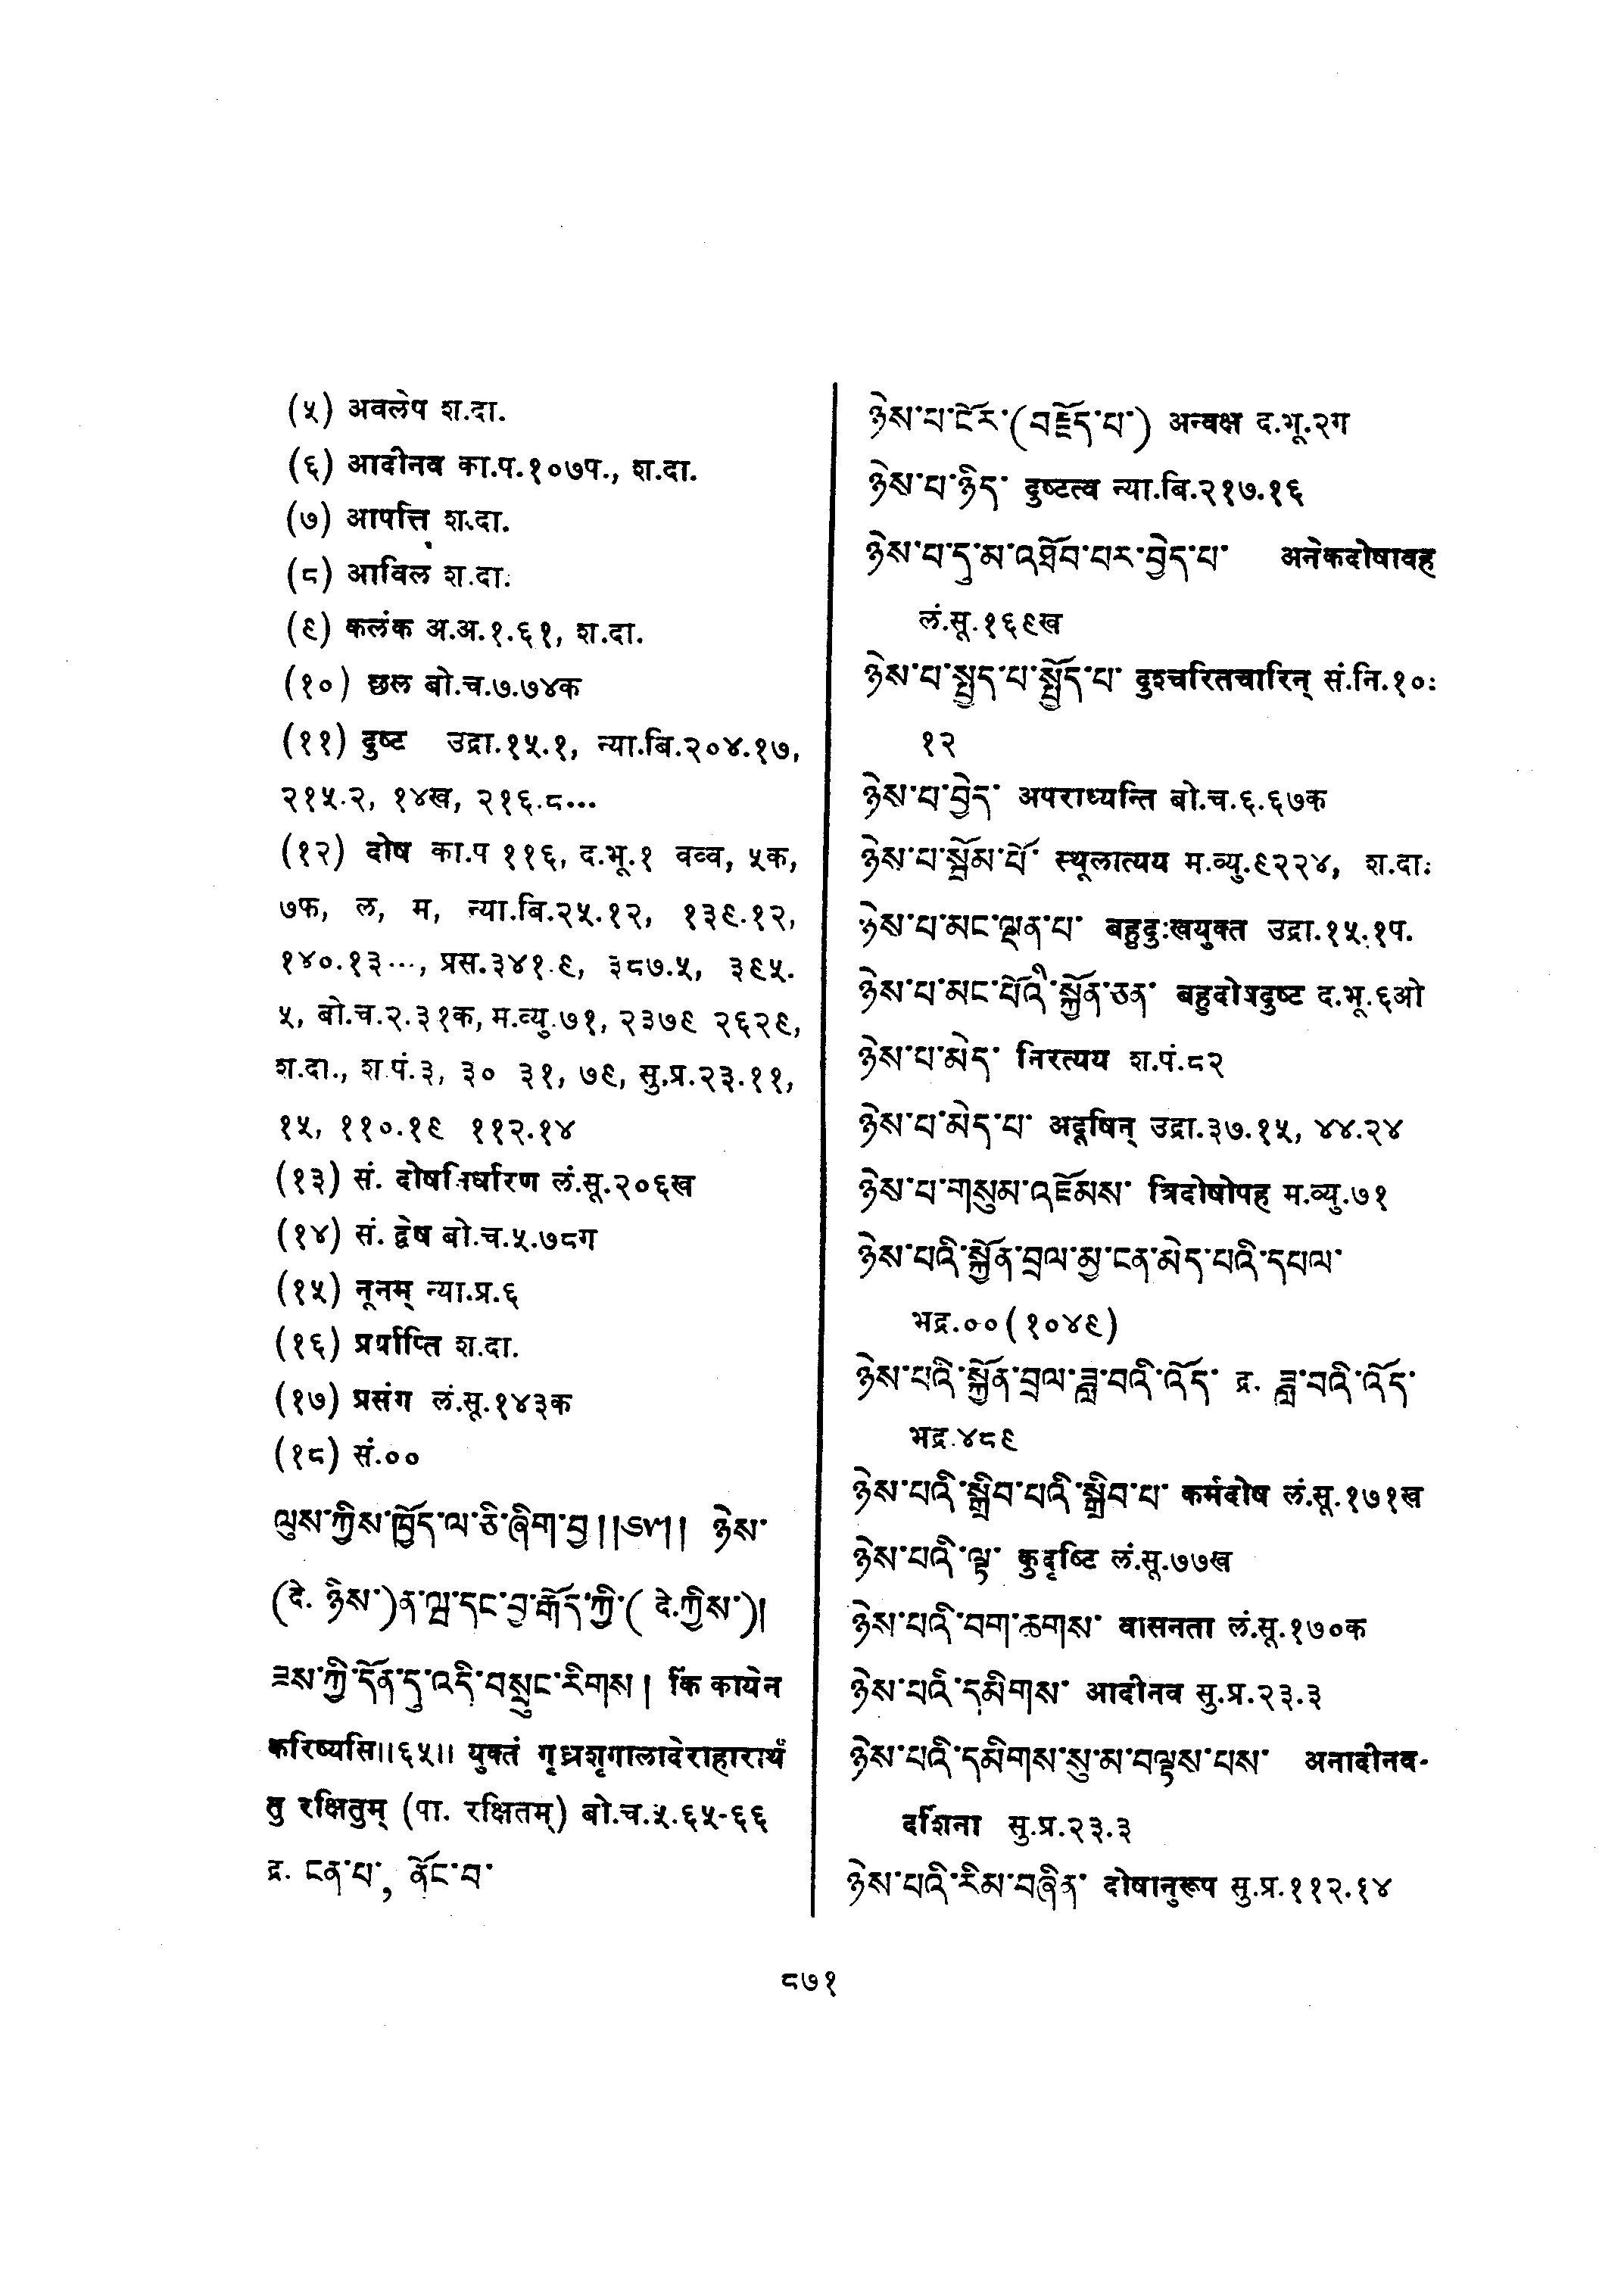 (५) अवलेप श.दा.
(६) आदीनव का.प.१०७प., श.दा.
(७) आपत्ति श.दा.
(८) आविल श.दा.
(९) कलंक अ.अ.१.६१, श.दा.
(१०) छल बो.च.७.७४क
(११) दुष्ट उद्रा.१५.१, न्या.बि.२०४.१७,
२१५.२, १४ख, २१६.८...
(१२) दोष का.प ११६, द.भू.१ वव्व, ५क,
७फ, ल, म, न्या.बि.२५.१२, १३९.१२,
१४०.१३..., प्रस.३४१.९, ३८७.५, ३९५.
५, बो.च.२.३१क, म.व्यु.७१, २३७९ २६२९,
श.दा., श.पं.३, ३० ३१, ७९, सु.प्र.२३.११,
१५, ११०.१९ ११२.१४
(१३) सं. दोषनिर्धारण लं.सू.२०६ख
(१४) सं. द्वेष बो.च.५.७८ग
(१५) नूनम् न्या.प्र.६
(१६) प्रर्याप्ति श.दा.
(१७) प्रसंग लं.सू.१४३क
(१८) सं.००
ལུས་ཀྱིས་ཁྱོད་ལ་ཅི་ཞིག་བྱ།།༦༥།། ཉེས་
(དེ. ཉེས་)ན་ཝ་དང་བྱ་རྒོད་ཀྱི་( དེ.ཀྱིས་)།
ཟས་ཀྱི་དོན་དུ་འདི་བསྲུང་རིགས། किं कायेन
करिष्यसि॥६५॥ युक्तं गृध्रशृगालादेराहारार्थं
तु रक्षितुम् (पा. रक्षितम्) बो.च.५.६५-६६
द्र. ངན་པ་, ནོང་བ་
ཉེས་པ་ངོར་(བརྗོད་པ་) अन्वक्ष द.भू.२ग
ཉེས་པ་ཉིད་ दुष्टत्व न्या.बि.२१७.१६
ཉེས་པ་དུ་མ་འཐོབ་པར་བྱེད་པ་ अनेकदोषावह
लं.सू.१६९ख
ཉེས་པ་སྤྱད་པ་སྤྱོད་པ་ दुश्चरितचारिन् सं.नि.१०:
१२
ཉེས་པ་བྱེད་ अपराध्यन्ति बो.च.६.६७क
ཉེས་པ་སྦོམ་པོ་ स्थूलात्यय म.व्यु.९२२४, श.दा:
ཉེས་པ་མང་ལྡན་པ་ बहुदुःखयुक्त उद्रा.१५.१प.
ཉེས་པ་མང་པོའི་སྐྱོན་ཅན་ बहुदोषदुष्ट द.भू.६ओ
ཉེས་པ་མེད་ निरत्यय श.पं.८२
ཉེས་པ་མེད་པ་ अदूषिन् उद्रा.३७.१५, ४४.२४
ཉེས་པ་གསུམ་འཇོམས་ त्रिदोषोपह म.व्यु.७१
ཉེས་པའི་སྐྱོན་བྲལ་མྱ་ངན་མེད་པའི་དཔལ་
भद्र.००(१०४९)
ཉེས་པའི་སྐྱོན་བྲལ་ཟླ་བའི་འོད་ द्र. ཟླ་བའི་འོད་
भद्र.४८९
ཉེས་པའི་སྒྲིབ་པའི་སྒྲིབ་པ་ कर्मदोष लं.सू.१७१ख
ཉེས་པའི་ལྟ་ कुदृष्टि लं.सू.७७ख
ཉེས་པའི་བག་ཆགས་ वासनता लं.सू.१७०क
ཉེས་པའི་དམིགས་ आदीनव सु.प्र.२३.३
ཉེས་པའི་དམིགས་སུ་མ་བལྟས་པས་ अनादीनव-
दर्शिना सु.प्र.२३.३
ཉེས་པའི་རིམ་བཞིན་ दोषानुरूप सु.प्र.११२.१४
८७१